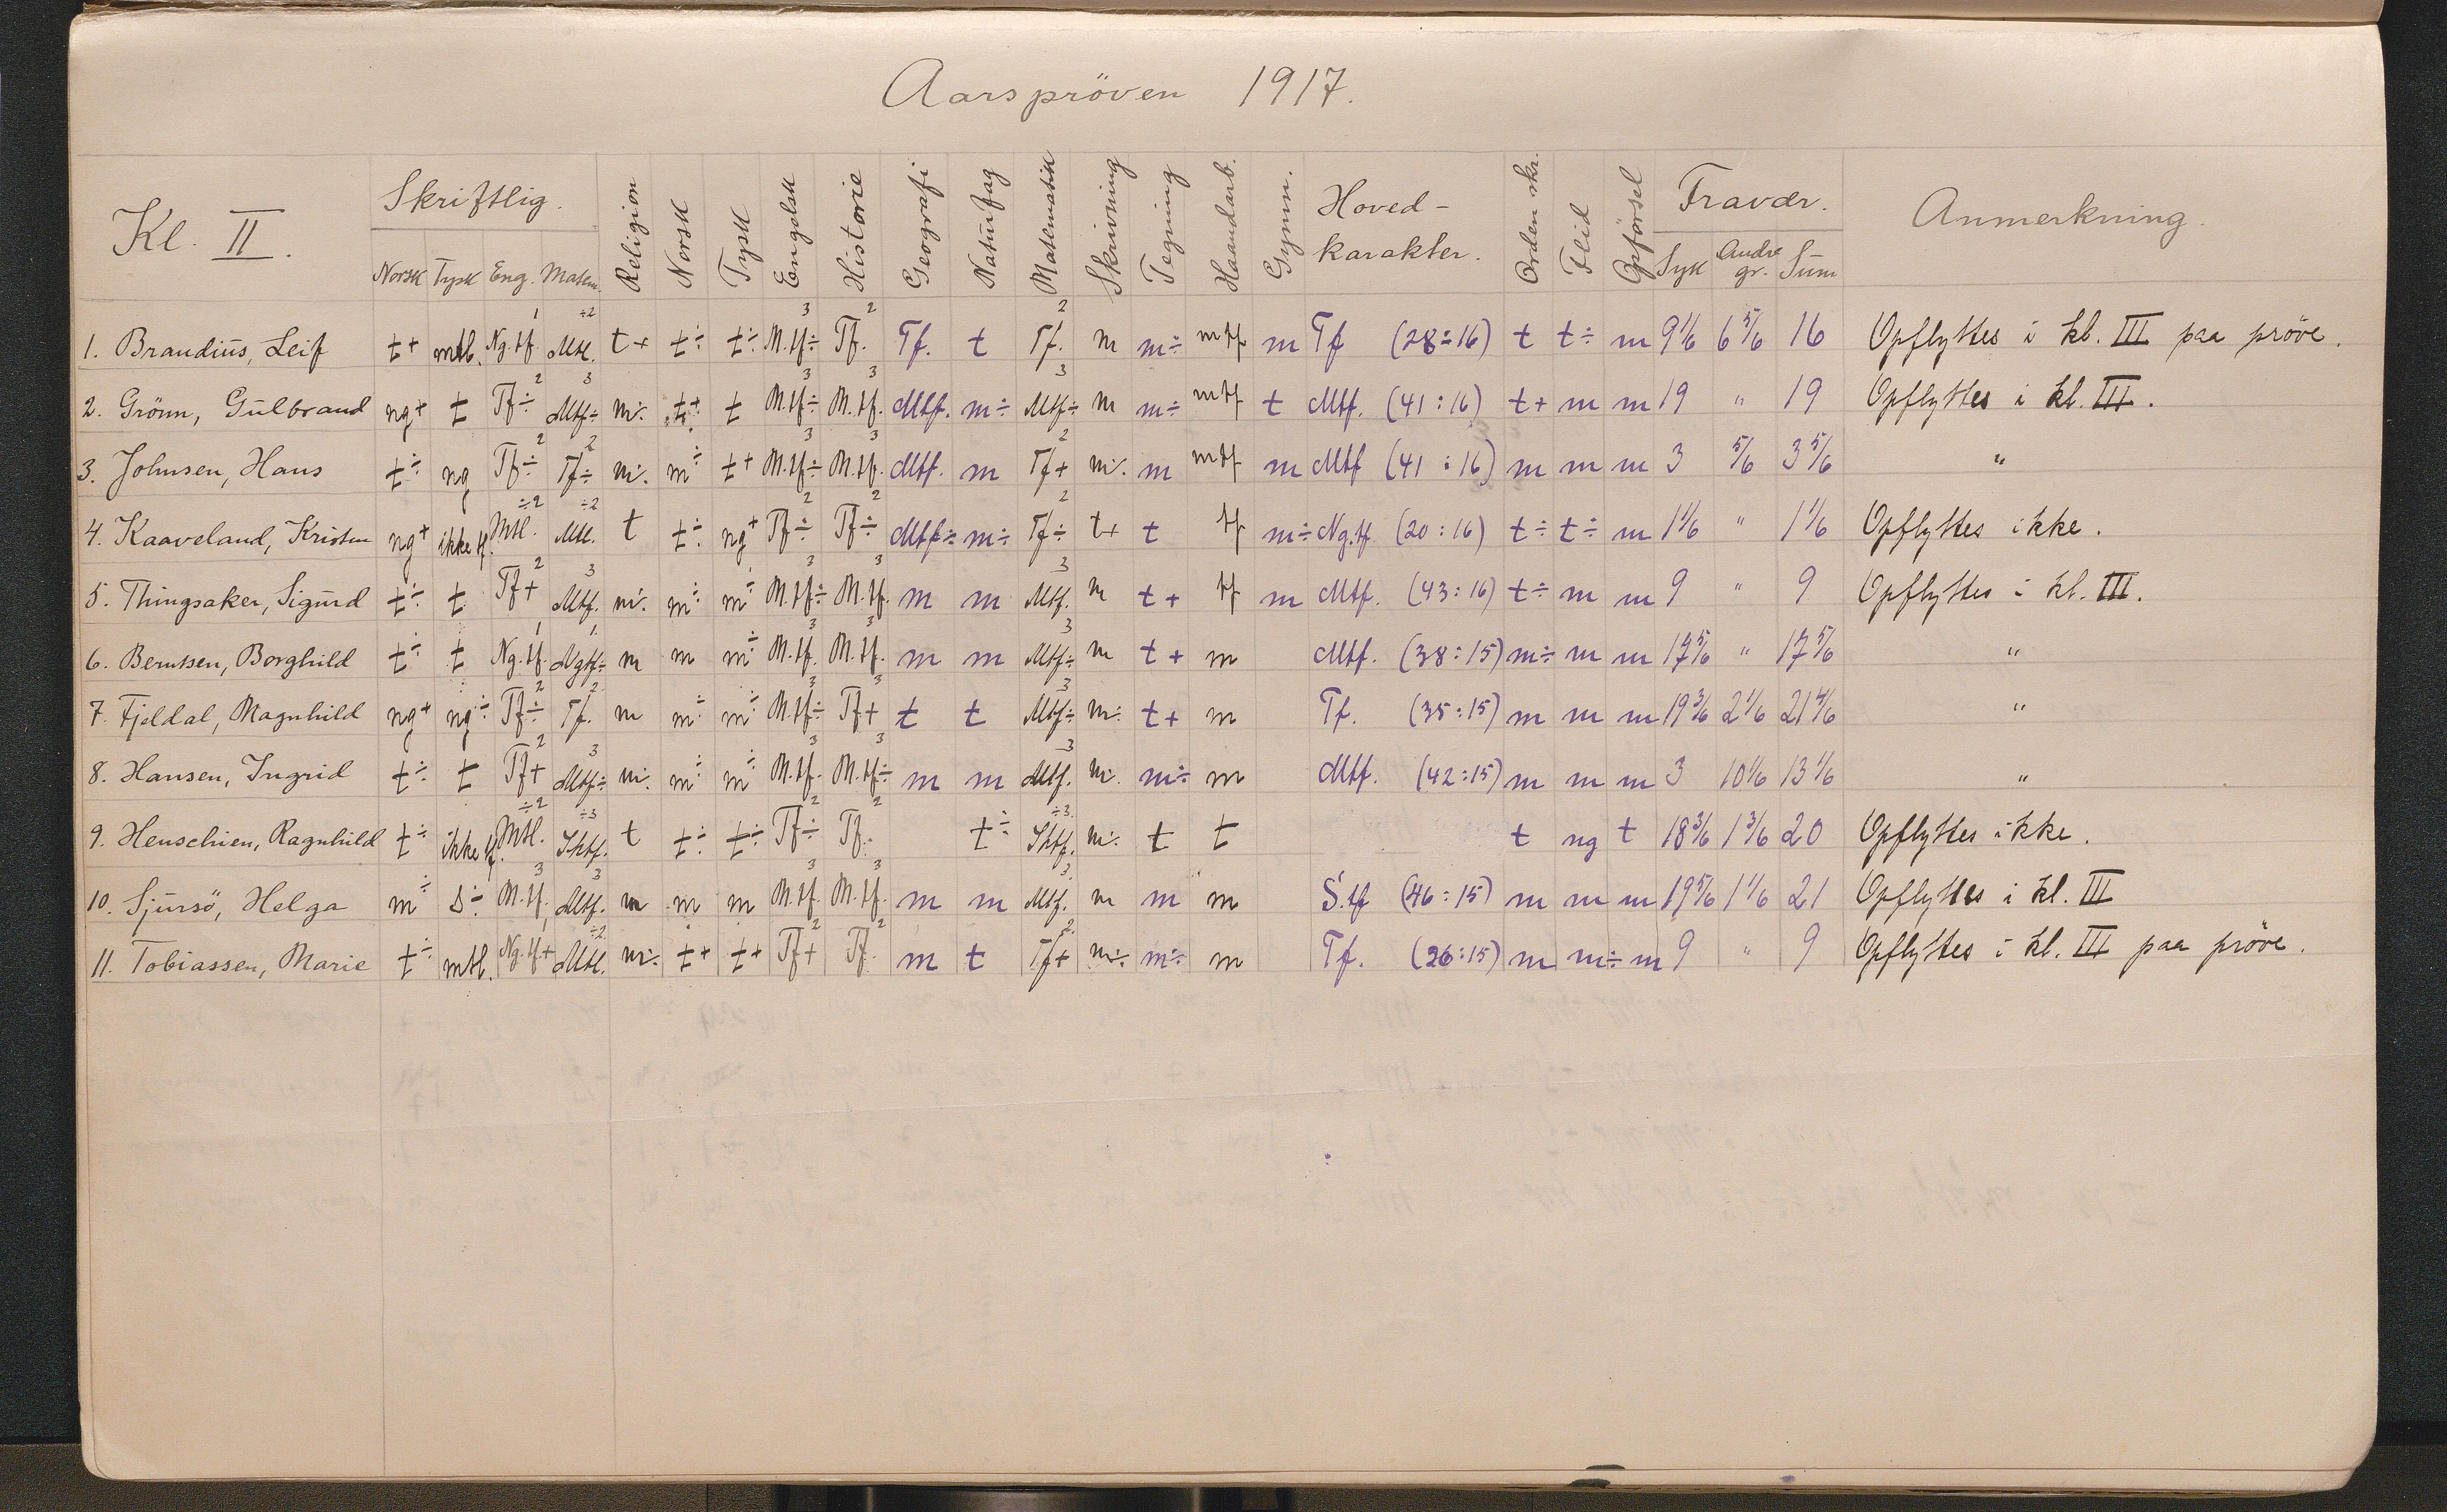 Aarspröven 1917.
Kl. II. Skriftlig. Religion Norsk Tysk Engelsk Historie Geografi Naturfag Matematikk Skrivning Tegning Haandarb. Gymn. Hoved-karakter. Orden skr. Flid Opførsel Fravær. Anmerkning.
Norsk Tysk Eng. Matem. Syk Andre gr. Sum
1. Brandius, Leif t+ mtl. Ng.tf 1 Mtl. ÷2 t+ t÷ t÷ M.tf÷ 3 Tf. 2 Tf. t Tf. 2 m m÷ mtf m Tf (28:16) t t÷ m 9 1/6 6 5/6 16 Opflyttes i kl. III paa pröve.
2. Grönn, Gulbrand ng+ t Tf÷ 2 Mtf÷ 3 m÷ t+ t M.tf÷ 3 M.tf. 3 Mtf. m÷ Mtf÷ 3 m m÷ mtf t Mtf. (41:16) t+ m m 19 " 19 Opflyttes i kl. III.
3. Johnsen, Hans t÷ ng Tf÷ 2 Tf÷ 2 m÷ m÷ t+ M.tf÷ 3 M.tf. 3 Mtf. m Tf+ 2 m÷ m mtf m Mtf (41:16) m m m 3 5/6 3 5/6 "
4. Kaaveland, Kristen ng+ ikke tf. Mtl. ÷2 Mtl. ÷2 t t÷ ng+ Tf÷ 2 Tf÷ 2 Mtf÷ m÷ Tf÷ 2 t+ t tf m÷ Ng.tf. (20:16) t÷ t÷ m 1 1/6 " 1 1/6 Opflyttes ikke.
5. Thingsaker, Sigurd t÷ t Tf+ 2 Mtf. 3 m÷ m÷ m÷ M.tf÷ 3 M.tf. 3 m m Mtf. 3 m t+ tf m Mtf. (43:16) t÷ m m 9 " 9 Opflyttes i kl. III.
6. Berntsen, Borghild t÷ t Ng.tf. 1 Ngtf÷ 1 m m m÷ M.tf. 3 M.tf. 3 m m Mtf÷ 3 m t+ m Mtf. (38:15) m÷ m m 17 5/6 " 17 5/6 "
7. Fjeldal, Magnhild ng+ ng÷ Tf÷ 2 Tf. 2 m m÷ m÷ M.tf÷ 3 Tf+ 3 t t Mtf÷ 3 m÷ t+ m Tf. (35:15) m m m 19 3/6 2 1/6 21 4/6 "
8. Hansen, Ingrid t÷ t Tf+ 2 Mtf÷ 3 m÷ m÷ m÷ M.tf. 3 M.tf÷ 3 m m Mtf. 3 m÷ m÷ m Mtf. (42:15) m m m 3 10 1/6 13 1/6 "
9. Henschien, Ragnhild t÷ ikke tf. Mtl. ÷2 Iktf. ÷3 t t÷ t÷ Tf÷ 2 Tf. 2 t÷ Iktf. ÷3 m÷ t t t ng t 18 3/6 1 3/6 20 Opflyttes ikke.
10. Sjursö, Helga m÷ s÷ M.tf. 3 Mtf. 3 m m m M.tf. 3 M.tf. 3 m m Mtf. 3 m m m S.tf (46:15) m m m 19 5/6 1 1/6 21 Opflyttes i kl. III
11. Tobiassen, Marie t÷ mtl. Ng.tf+ Mtl. ÷2 m÷ t+ t+ Tf+ 2 Tf. 2 m t Tf+ 2 m÷ m÷ m Tf. (26:15) m m÷ m 9 " 9 Opflyttes i kl. III paa pröve.